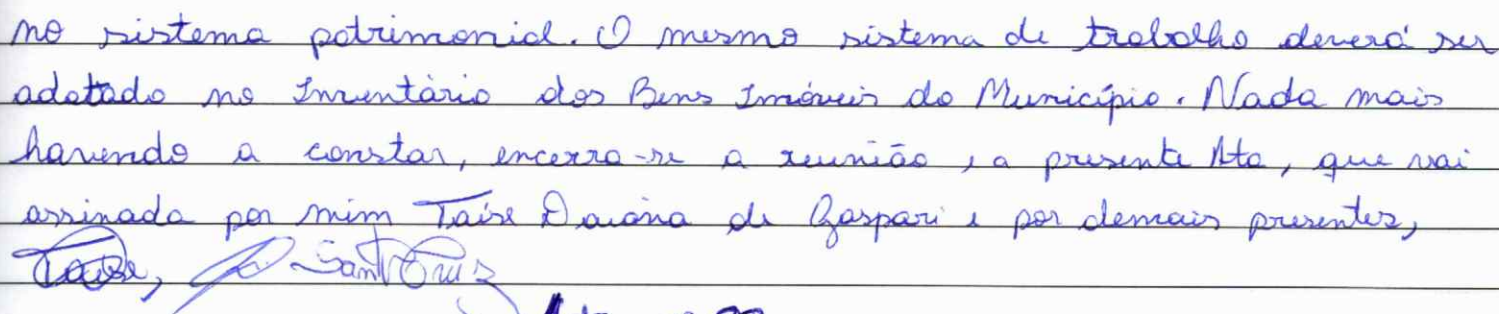 no sistema patrimonial. O mesmo sistema de trabalho deverá ser
adotado no Inventário dos Bens Imóveis do Município. Nada mais
havendo a constar, encerra-se a reunião, a presente Ata, que vai
assinada por mim Taise Daiana de Gaspari e por demais presentes,
Taise, Sant Cruz